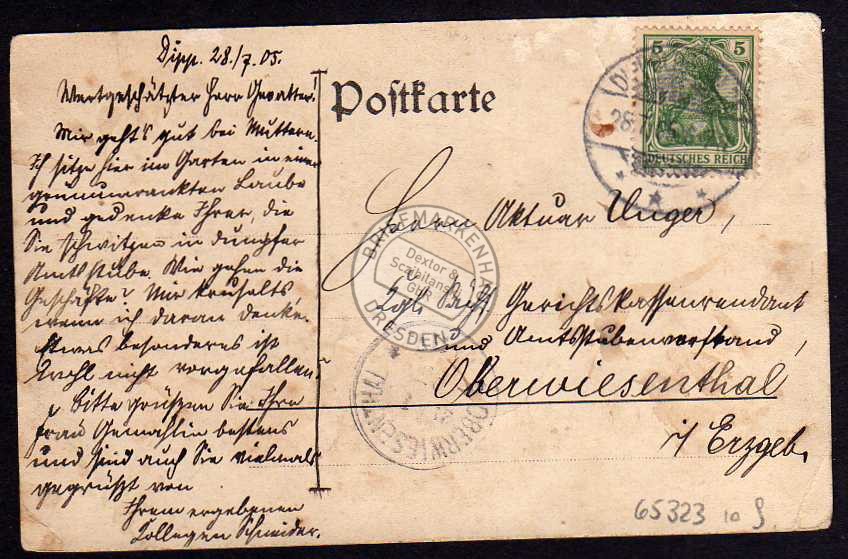 Dipp. 28./7.05.
Wertgeschätzter Herr Gevatter!
Mir geht's gut bei Muttern.
Ich sitze hier im Garten in einer
grünumrankten Laube
und gedenke Ihrer, die
Sie schwitzen in dumpfer
Amtsstube. Wie gehen die
Geschäfte? Mir kruselts,
wenn ich daran denke.
Etwas besonderes ist
wohl nicht vorgefallen?
Bitte grüßen Sie Ihre
Frau Gemahlin bestens
und sind auch Sie vielmals
gegrüßt von
Ihrem ergebenen
Kollegen Schneider.
Postkarte
5 5
DEUTSCHES REICH
28
Herrn Aktuar Unger,
Kgl. Sächs. Gerichtskassenrendant
und Amtsstubenvorstand,
Oberwiesenthal
i/ Erzgeb.
BRIEFMARKENH
Dextor &
Scabitans
GbR
DRESDEN
OBERWIESENTHAL
65323 10